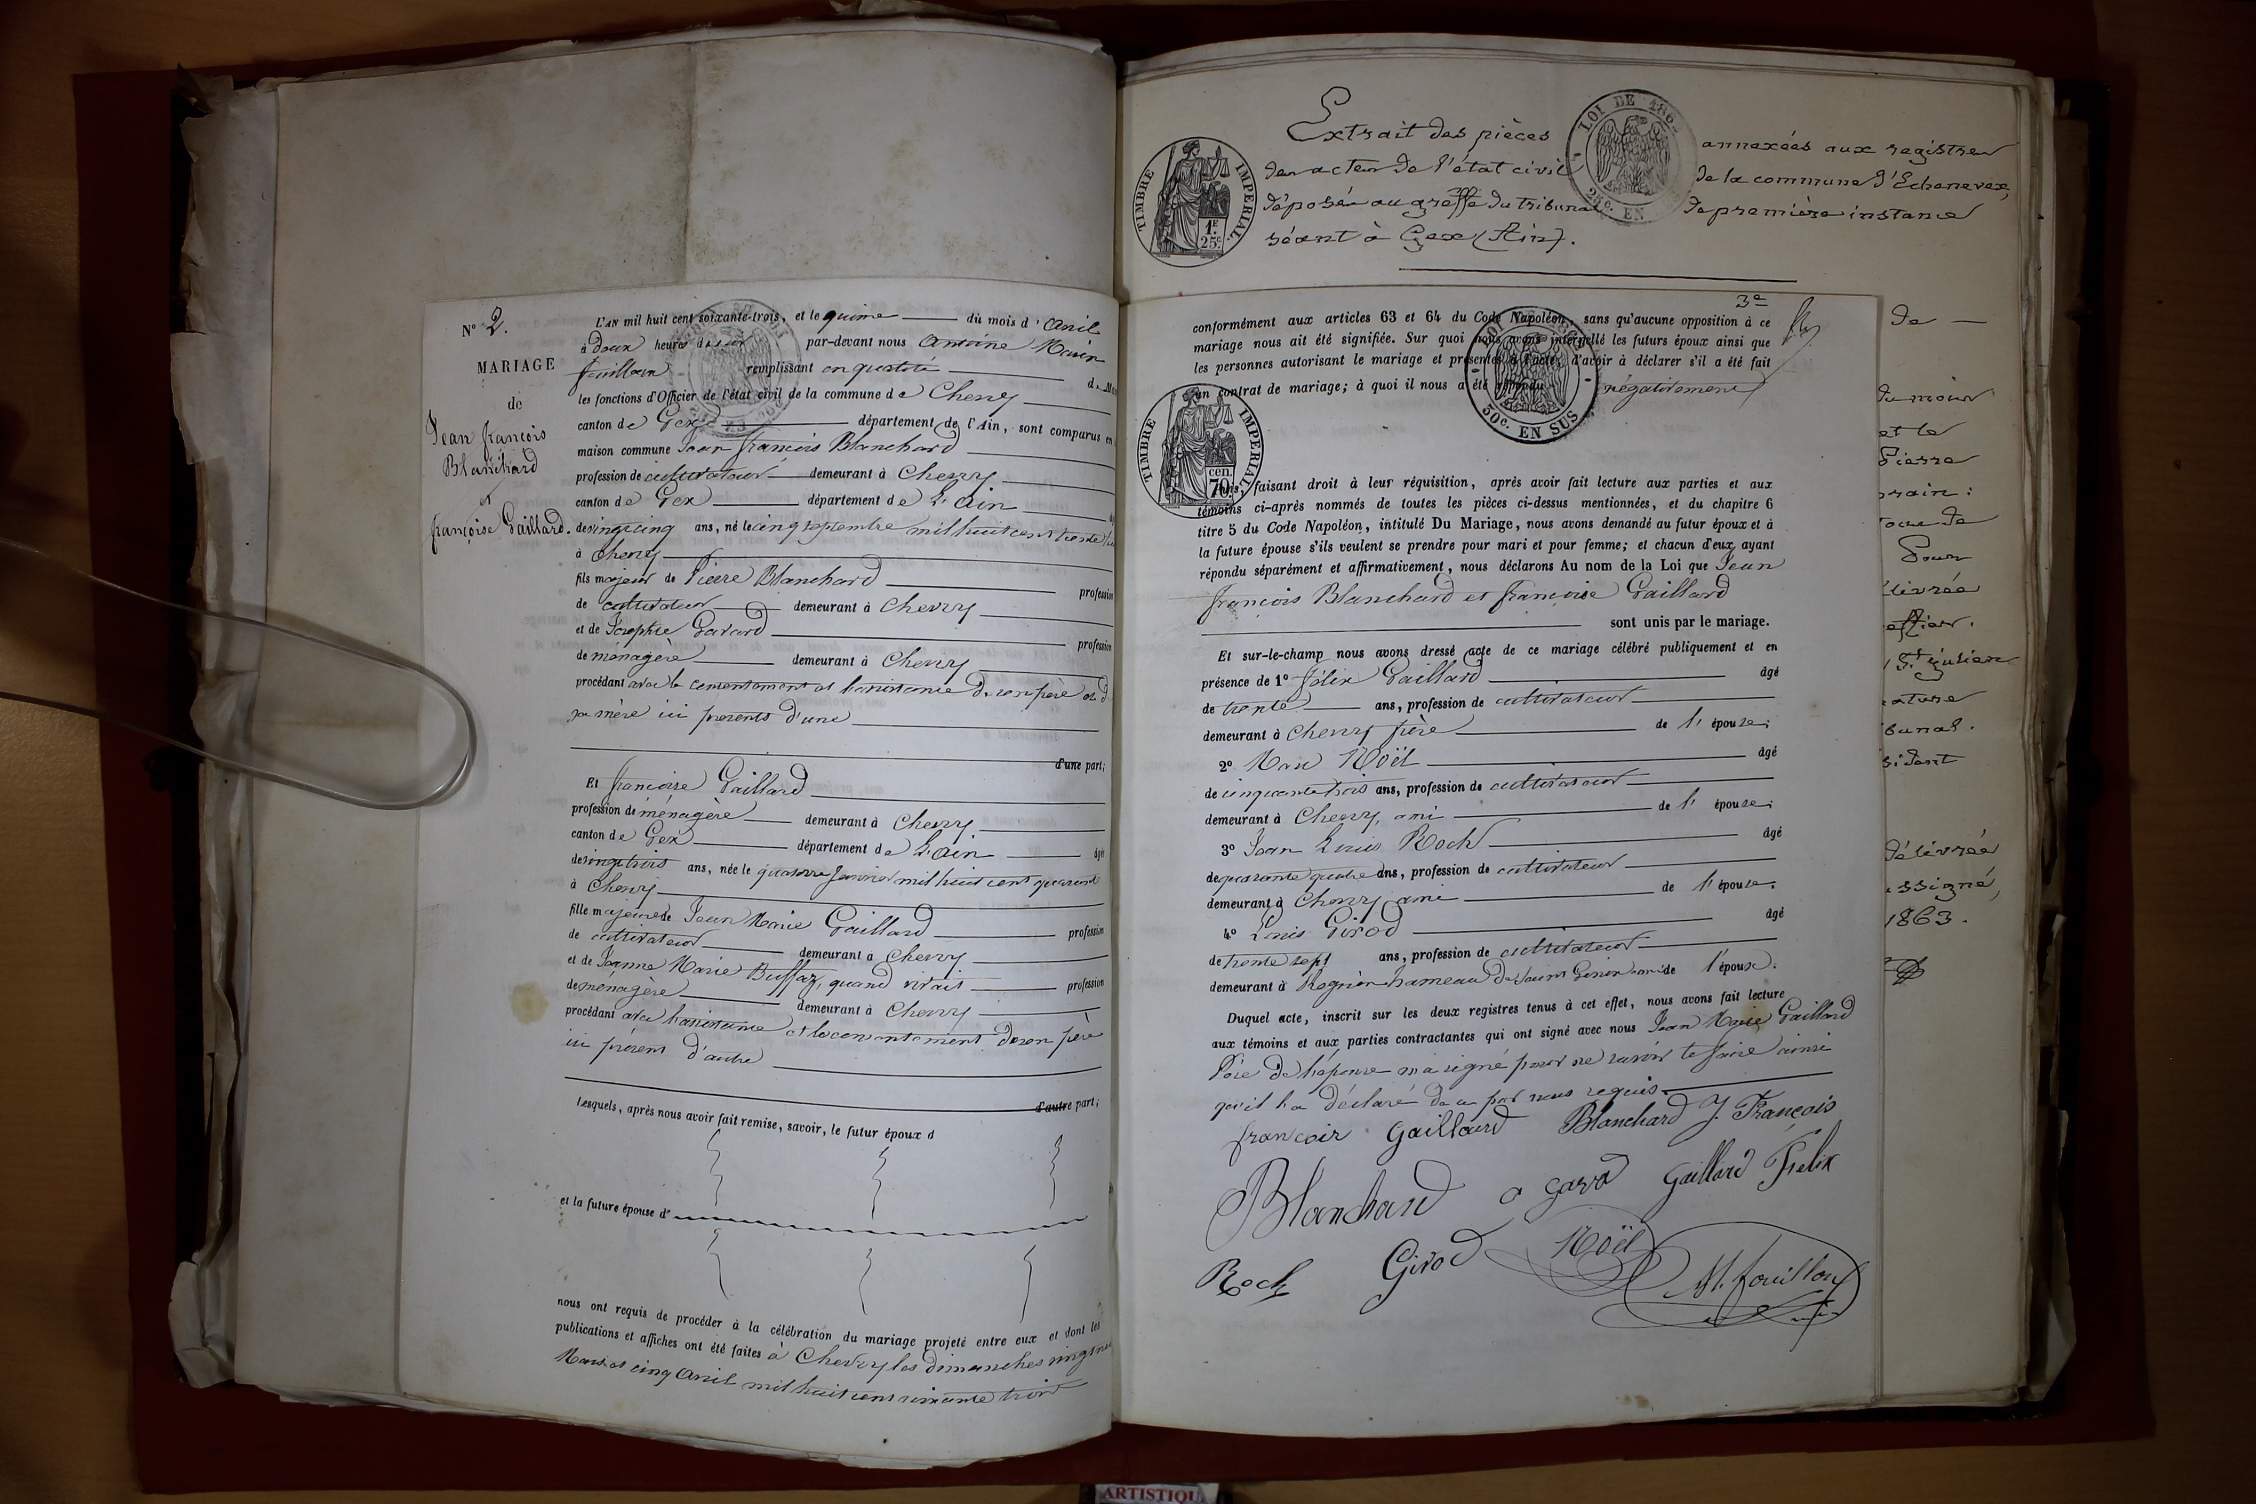 N° 2.
MARIAGE
de
Jean françois
Blanchard
et
françoise Gaillard.
L'AN mil huit cent soixante-trois, et le quinze du mois d'Avril
à deux heures du soir par-devant nous Antoine Marin
fouilloux remplissant en qualité de Maire
les fonctions d'Officier de l'état civil de la commune de Chevry
canton de Gex département de l'Ain, sont comparus en
maison commune Jean françois Blanchard
profession de cultivateur demeurant à Chevry
canton de Gex département de L'ain
de vingt cinq ans, né le cinq septembre mil huit cent trente
à Chevry
fils majeur de Pierre Blanchard profession
de cultivateur demeurant à Chevry
et de Josephte Gavard profession
de ménagère demeurant à Chevry
procédant avec le consentement et l'assistance de son père et d
sa mère ici présents d'une
d'une part;
Et françoise Gaillard
profession de ménagère demeurant à Chevry
canton de Gex département de L'ain âgée
de vingt trois ans, née le quatorze Janvier mil huit cent quarante
à Chevry
fille majeure de Jean Marie Gaillard profession
de cultivateur demeurant à Chevry
et de Jeanne Marie Buffaz, quand vivait profession
de ménagère demeurant à Chevry
procédant avec l'assistance et le consentement de son père
ici présent d'autre
d'autre part;
Lesquels, après nous avoir fait remise, savoir, le futur époux d
et la future épouse d'
nous ont requis de procéder à la célébration du mariage projeté entre eux et dont les
publications et affiches ont été faites à Chevry les dimanches vingt neuf
Mars et cinq Avril mil huit cent soixante trois
Extrait des pièces annexées aux registres
des actes de l'état civil de la commune d'Echenevex,
déposés au greffe du tribunal de première instance
séant à Gex (Ain).
TIMBRE IMPERIAL.
1F. 25c.
LOI DE 1862
25c. EN
3e
conformément aux articles 63 et 64 du Code Napoléon, sans qu'aucune opposition à ce
mariage nous ait été signifiée. Sur quoi nous avons interpellé les futurs époux ainsi que
les personnes autorisant le mariage et présentes à l'acte, d'avoir à déclarer s'il a été fait
un contrat de mariage; à quoi il nous a été répondu négativement
50c. EN SUS
TIMBRE IMPERIAL
cen. 70.
faisant droit à leur réquisition, après avoir fait lecture aux parties et aux
témoins ci-après nommés de toutes les pièces ci-dessus mentionnées, et du chapitre 6
titre 5 du Code Napoléon, intitulé Du Mariage, nous avons demandé au futur époux et à
la future épouse s'ils veulent se prendre pour mari et pour femme; et chacun d'eux ayant
répondu séparément et affirmativement, nous déclarons Au nom de la Loi que Jean
françois Blanchard et françoise Gaillard
sont unis par le mariage.
Et sur-le-champ nous avons dressé acte de ce mariage célébré publiquement et en
présence de 1° félix Gaillard âgé
de trente ans, profession de cultivateur
demeurant à Chevry frère de l'épouse;
2° Noël âgé
de cinquante trois ans, profession de cultivateur
demeurant à Chevry, ami de l'épouse;
3° Jean Louis Roch âgé
de quarante quatre ans, profession de cultivateur
demeurant à Chevry ami de l'épouse.
4° Louis Girod âgé
de trente sept ans, profession de cultivateur
demeurant à hameau de Saint Genix ami de l'époux.
Duquel acte, inscrit sur les deux registres tenus à cet effet, nous avons fait lecture
aux témoins et aux parties contractantes qui ont signé avec nous Jean Marie Gaillard
Père de l'épouse n'a signé pour ne savoir le faire ainsi
qu'il l'a déclaré de ce par nous requis.
francoise Gaillard Blanchard J. François
Blanchard Gaillard Felix
Roch Girod Noël M. fouilloux
de
du mois
et le
Pierre
de
Pour
St Julien
1863.
ARTISTIQU